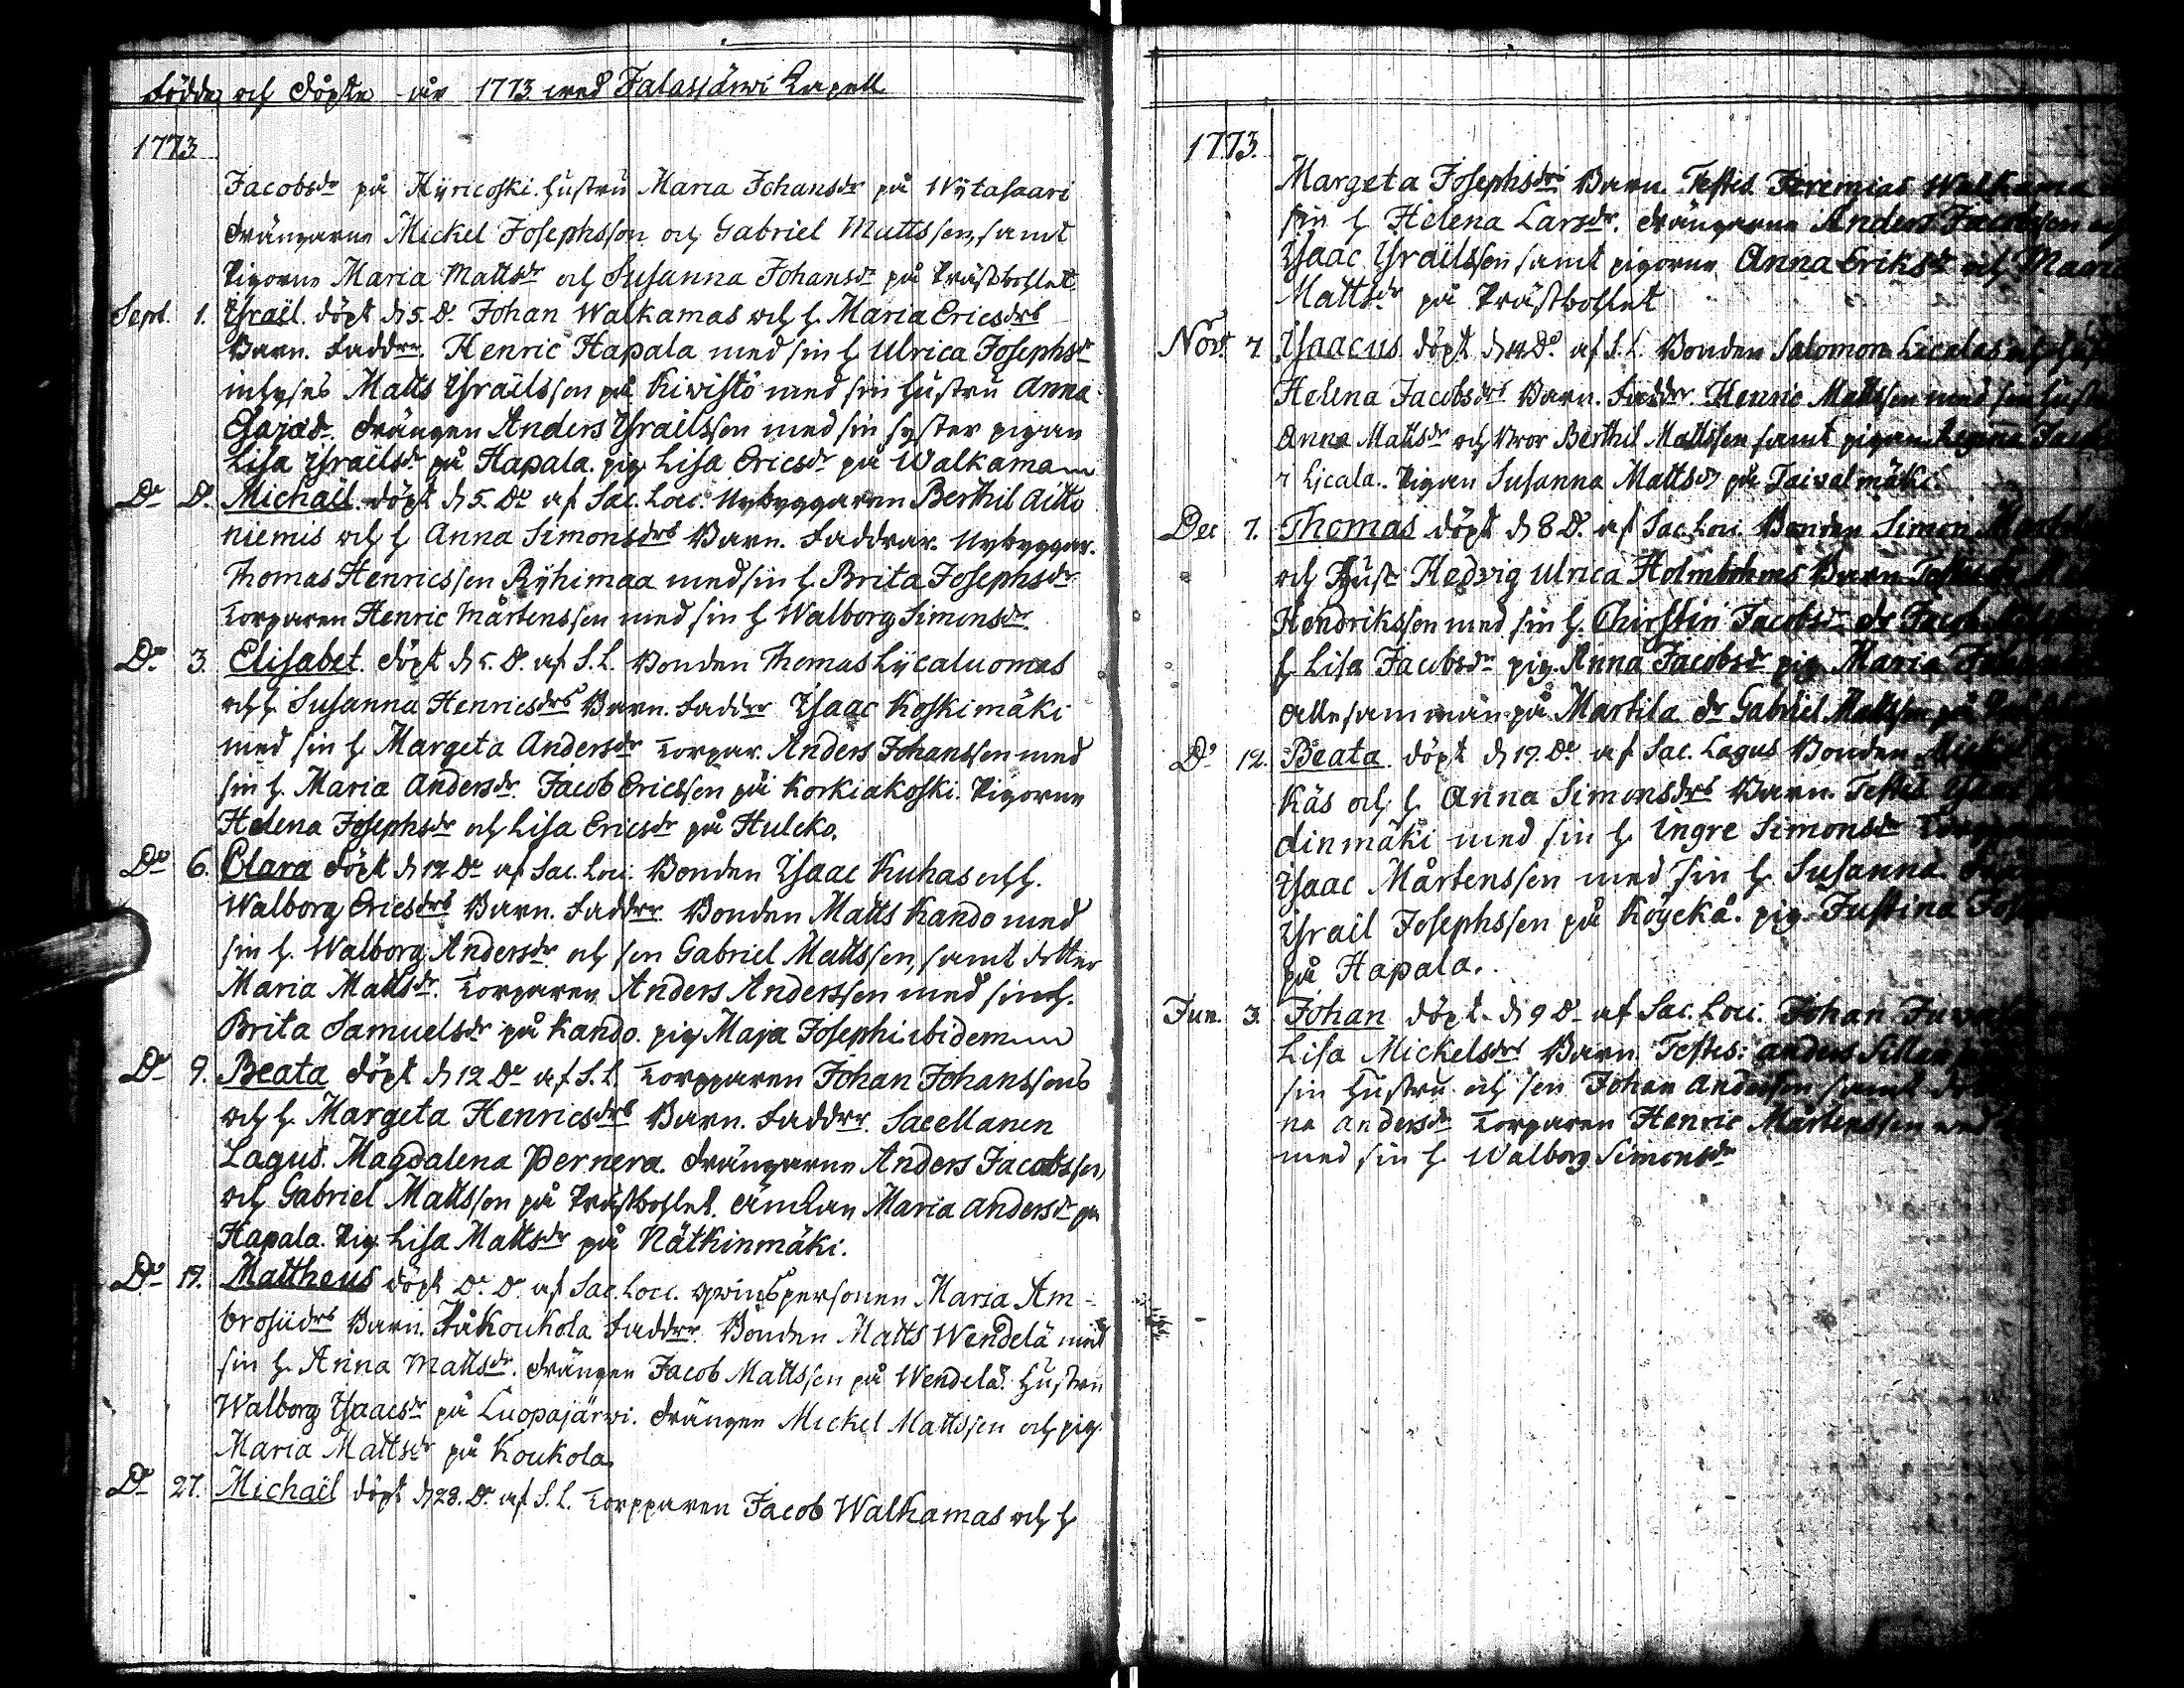 Födde och Döpte åhr 1773 wed Jalasjärwi Capell
1773
Jacobsdr på Kyricoski. Hustru Maria Johansdr på Wytasaari
Drängarne Mickel Josephsson och Gabriel Mattsson, samt
Pigorne Maria Mattsdr och Susanna Johansdr på Prästbohlet.
Sept. 1. Israël döpt d 5. Do Johan Walkamas och h. Maria Ericsdrs
Barn. Faddrr. Henric Hapala med sin h Ulrica Josephsdr
inhyses Matts Israëlsson på Kiwistö med sin hustru Anna
Esaiædr. Drängen Anders Israelsson med sin syster pigan
Lisa Israelsdr på Hapala. pig. Lisa Ericsdr på Walkama
Do Do. Michaël döpt d 5. Do af Sac. Loci. Nybyggaren Berthil Aitto
niemis och h Anna Simonsdrs Barn. Faddrar. Nybyggar.
Thomas Henricsson Ryhimaa med sin h. Brita Josephsdr
Torparen Henric Mårtensson med sin h Walborg Simonsdr
Do 3. Elisabet. döpt d 5. Do. af S. L. Bonden Thomas Lycaluomas
och h. Susanna Henricsdrs Barn. Faddrr Isaac Koskimäki
med sin h Margeta Andersdr Torpar. Anders Johansson med
sin h. Maria Andersdr. Jacob Ericsson på Korkiakoski. Pigorne
Helena Josephsdr och Lisa Ericsdr på Hulcko.
Do 6. Clara döpt d 12 Do af Sac. Loci. Bonden Isaac Kuhas och h.
Walborg Ericsdrs Barn. Faddrr. Bonden Matts Kando med
sin h. Walborg Andersdr och son Gabriel Mattsson, samt dotter
Maria Mattsdr. Torparen Anders Andersson med sin h.
Brita Samuelsdr på Kando. pig Maja Josephi ibidem
Do 9. Beata döpt d 12 Do af S. L. Torpparen Johan Johanssons
och h. Margeta Henricsdrs Barn. Faddrr. Sacellanen
Lagus. Magdalena Pernera. Drängarne Anders Jacobsson,
och Gabriel Mattsson på Prästbohlet. Änckan Maria Andersdr på
Hapala. Pig Lisa Mattsdr på Nätkinmäki.
Do 19. Mattheus döpt Do. Do af Sac. Loci. Qwinspersonen Maria Am-
brosiidrs Barn. På Koukola Faddrr. Bonden Matts Wendelä med
sin h. Anna Mattsdr. Drängen Jacob Mattsson på Wendelä. Hustru
Walborg Isaacsdr på Luopajärwi. Drängen Mickel Mattsson och pig.
Maria Mattsdr på Koukola
Do 27. Michaël döpt d 28. Do. af S. L. Torpparen Jacob Walkamas och h
1773.
Margeta Josephsdrs Barn Testes Jeremias Walkama
sin h Helena Larsdr. Drängarne Anders Jacobsson och
Isaac Israëlsson samt pigorne Anna Eriksdr och Maria
Mattsdr på Prästbohlet
Novr. 7. Isaacus döpt d 14 Do. af S. L. Bonden Salomon
Helena Jacobsdrs Barn. Faddr. Henric Mattsson med sin hustru
Anna Mattsdr och bror Berthil Mattsson samt pigan Regina
i Licala. Pigan Susanna Mattsdr på Taiwalmäki
Dec 7. Thomas döpt d 8 Do. af Sac. Loci. Bonden Simon
och Hust Hedvig Ulrica Holmbohms Barn
Hendriksson med sin h. Chirstin Jacobsdr dr Jacob
h Lisa Jacobsdr pig. Anna Jacobsdr pig. Maria
allesamman på Martila dr Gabriel Mattsson på
Do 12. Beata. döpt d 19. Do af Sac. Lagus Bonden
Käs och h Anna Simonsdrs Barn. Testes
dinmäki med sin h. Ingre Simonsdr
Isaac Mårtensson med sin h Susanna
Israil Josephsson på Köyckä. pig. Justina
på Hapala.
Jun. 3. Johan döpt d 9 Do af Sac. Loci. Johan
Lisa Mickelsdrs Barn. Testes: Anders
sin hustru och son Johan Andersson samt
na Andersdr Torparen Henric Mårtensson
med sin h. Walborg Simonsdr